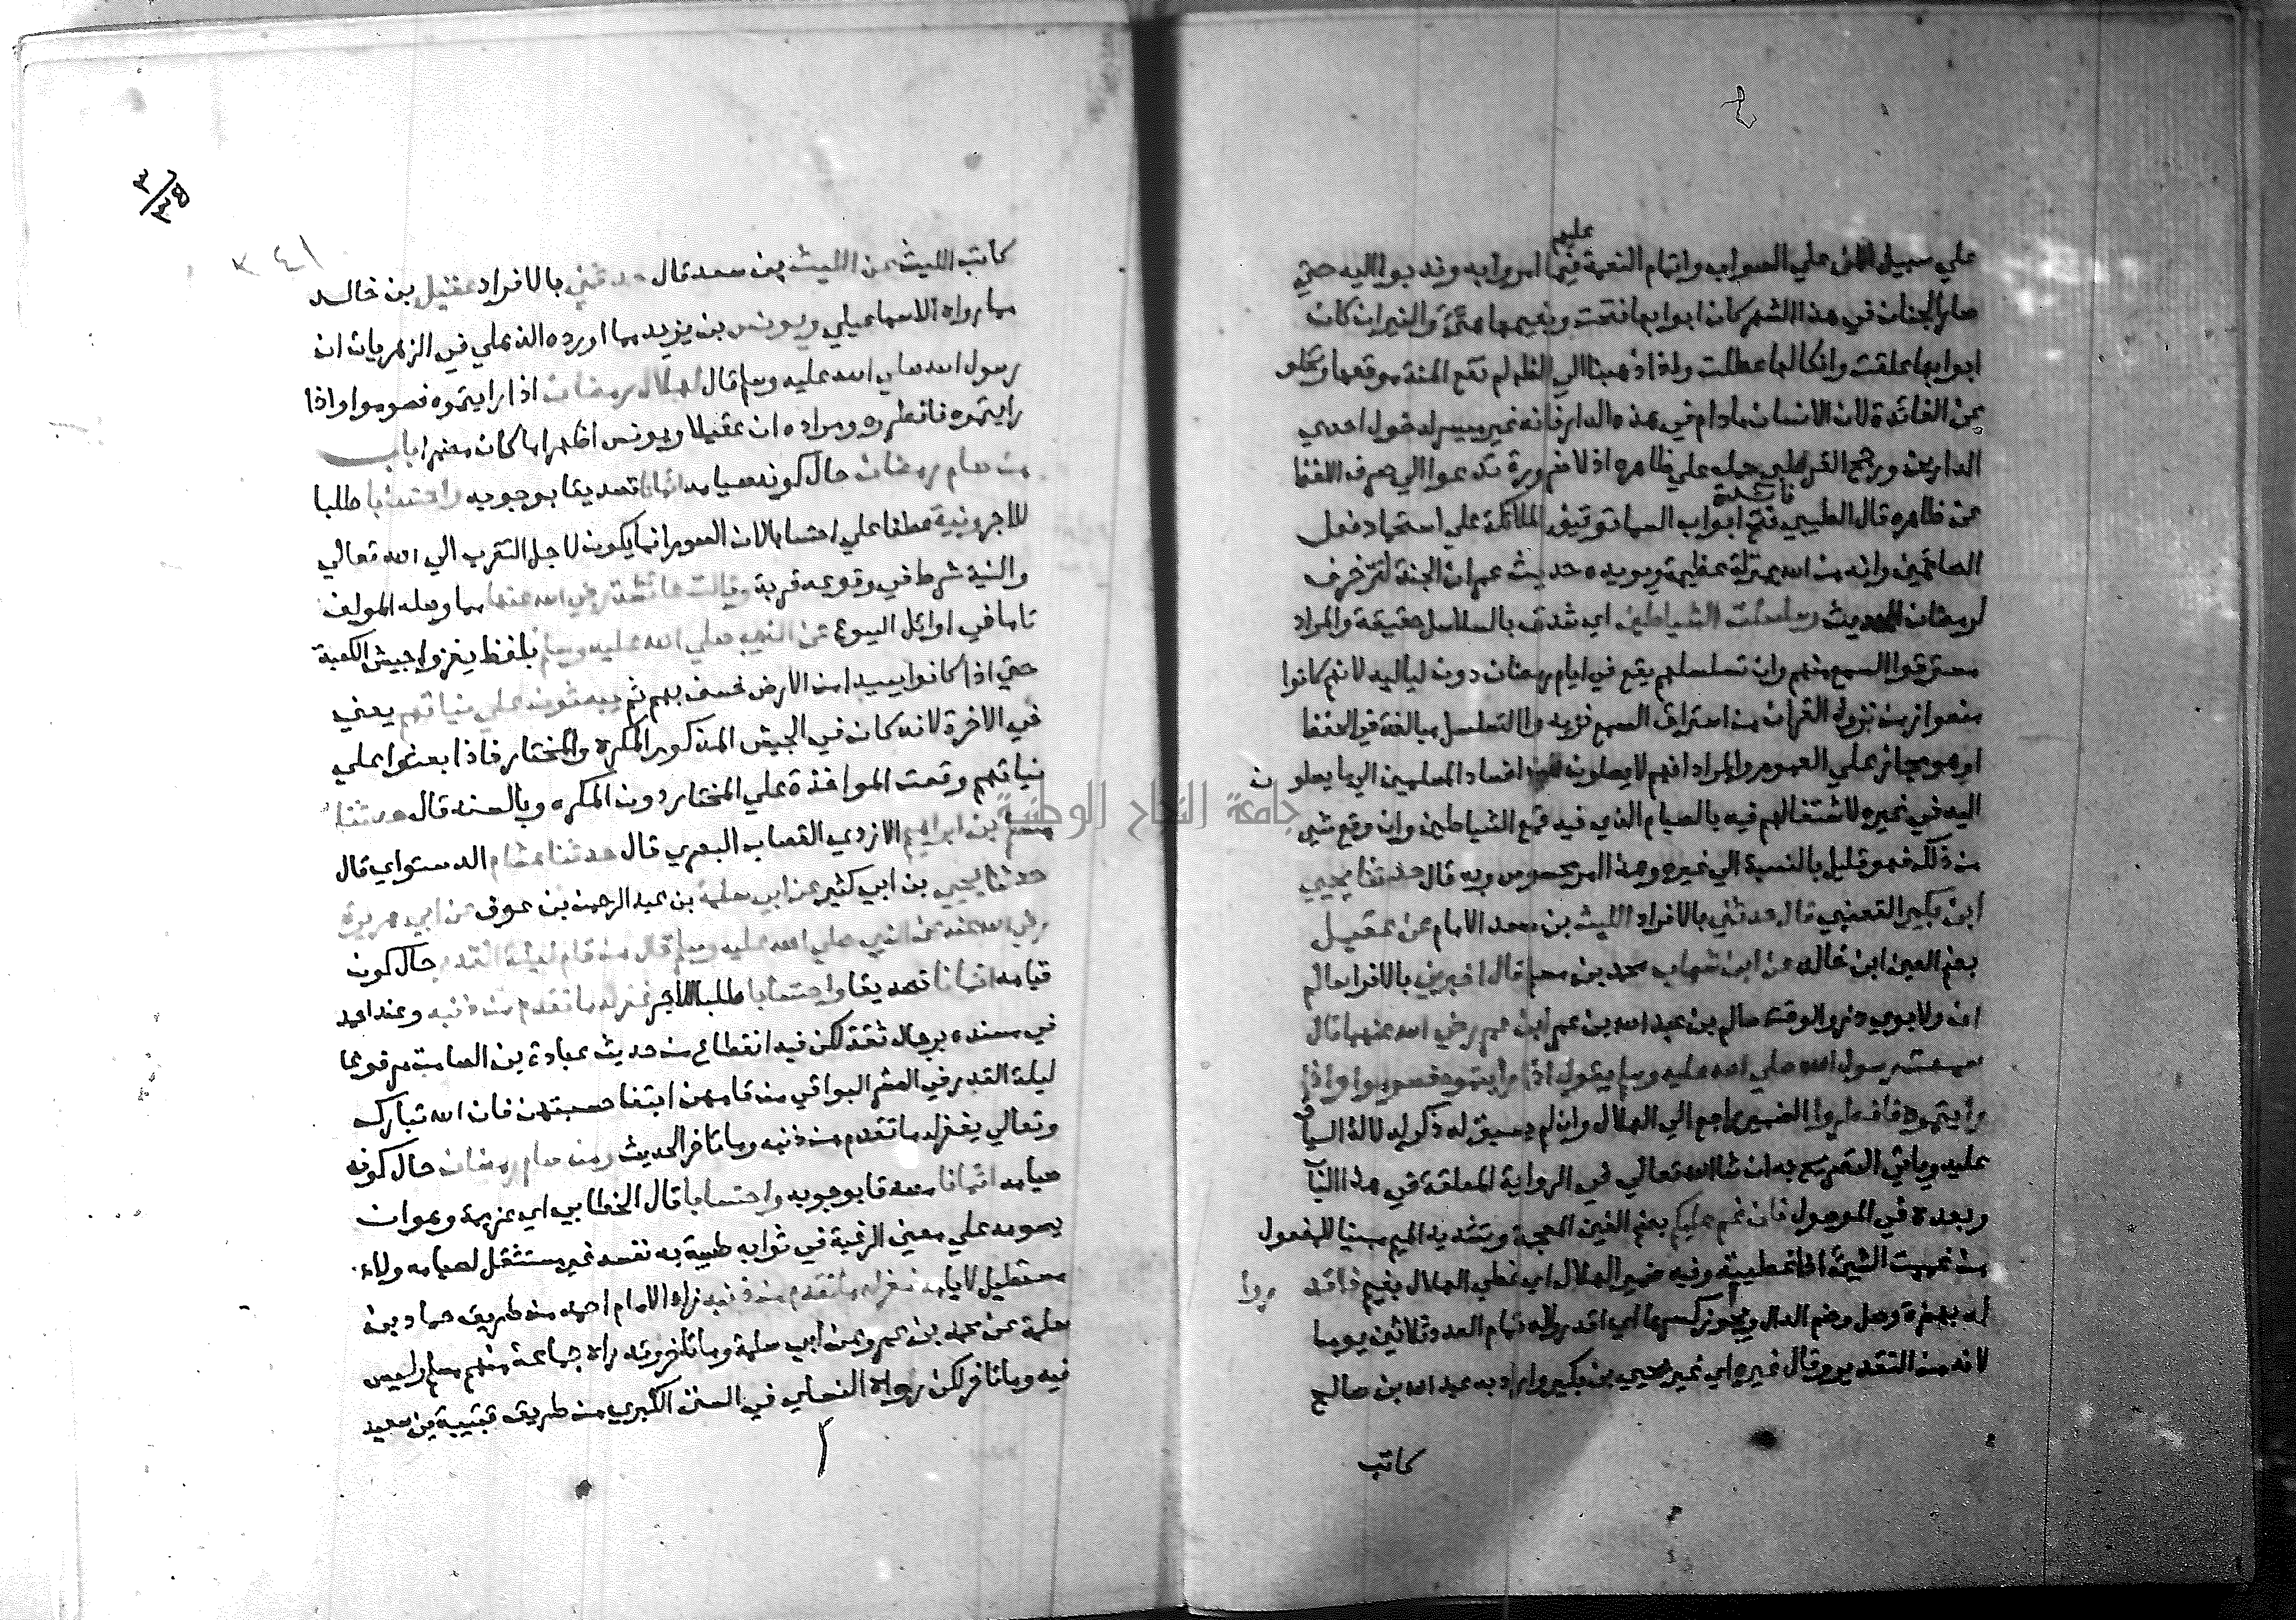 عليهم
علي سبيل الامن علي الصواب واتمام النعمة فيما امروا به وندبوا اليه حتي
صار الجنان في هذا الشهر كان ابوابها فتحت ونعيمها هيئ والنيران كان
ابوابها غلقت وانكالها عطلت واذا ذهبنا الي الظاهر لم تقع المنة موقعها وتخلو
عن الفائدة لان الانسان مادام في هذه الدار فانه غير ميسر لدخول احدي
الدارين ورجح القرطبي حمله علي ظاهره اذ لا ضرورة تدعوا الي صرف اللفظ
عن ظاهره قال الطيبي فائدة فتح ابواب السما توقيف الملائكة علي استحماد فعل
الصائمين وانه من الله بمنزلة عظيمة ويويده حديث عمر ان الجنة لتزخرف
لرمضان الحديث وسلسلت الشياطين اي شدت بالسلاسل حقيقة والمراد
مسترقوا السمع منهم وان تسلسلهم يقع في ايام رمضان دون لياليه لانهم كانوا
منعوا زمن نزول القران من استراق السمع فزيدوا التسلسل مبالغة في الحفظ
او هو مجاز علي العموم والمراد انهم لا يصلون من افساد المسلمين الي ما يصلون
اليه في غيره لاشتغالهم فيه بالصيام الذي فيه قمع الشياطين وان وقع شي
من ذلك فهو قليل بالنسبة الي غيره وهذا امر محسوس وبه قال حدثنا يحيي
ابن بكير القعنبي قال حدثني بالافراد الليث بن سعد الامام عن عقيل
بضم العين ابن خالد عن ابن شهاب محمد بن مسلم قال اخبرني بالافراد سالم
ابن ولابوي ذر والوقت سالم بن عبد الله بن عمر ابن عمر رضي الله عنهما قال
سمعت رسول الله صلي الله عليه وسلم يقول اذا رايتموه فصوموا واذا
رايتموه فافطروا الضمير راجع الي الهلال وان لم يسبق له ذكر لدلالة السياق
عليه وياتي التصريح به ان شا الله تعالي في الرواية المعلقة في هذا الباب
وبعده في الموصول فان غم عليكم بضم الغين المعجمة وتشديد الميم مبنيا للمفعول
من غممت الشيء اذا غطيته وفيه ضمير الهلال اي غطي الهلال بغيم فاقدروا
له بهمزة وصل وضم الدال ويجوز كسرها اي اقدروا له تمام العدد ثلاثين يوما
لانه من التقدير وقال غيره اي غير يحيي بن بكير واراد به عبد الله بن صالح
كاتب
كاتب الليث عن الليث بن سعد قال حدثني بالافراد عقيل بن خالد
مما رواه الاسماعيلي ويونس بن يزيد مما اورده الذهلي في الزهريات ان
رسول الله صلي الله عليه وسلم قال لهلال رمضان اذا رايتموه فصوموا واذا
رايتموه فافطروه ومراده ان عقيلا ويونس اظهرا ما كان مضمرا باب
من صام رمضان حال كونه صيامه ايمانا تصديقا بوجوبه واحتسابا طلبا
للاجر ونية عطفا علي احتسابا لان الصوم انما يكون لاجل التقرب الي الله تعالي
والنية شرط في وقوعه قربة وقالت عائشة رضي الله عنها مما وصله المولف
تاما في اوائل البيوع عن النبي صلي الله عليه وسلم بلفظ يغزوا جيش الكعبة
حتي اذا كانوا ببيدا من الارض خسف بهم ثم يبعثون علي نياتهم يعني
في الاخرة لانه كان في الجيش المذكور المكره والمختار فاذا بعثوا علي
نياتهم وقعت المواخذة علي المختار دون المكره وبالسند قال حدثنا
مسلم بن ابراهيم الازدي القصاب البصري قال حدثنا هشام الدستواي قال
حدثنا يحيي بن ابي كثير عن ابي سلمة بن عبد الرحمن بن عوف عن ابي هريرة
رضي الله عنه عن النبي صلي الله عليه وسلم قال من قام ليلة القدر حال كون
قيامه ايمانا تصديقا واحتسابا طلبا للاجر غفر له ما تقدم من ذنبه وعند احمد
في مسنده برجال ثقة لكن فيه انقطاع من حديث عبادة بن الصامت مرفوعا
ليلة القدر في العشر البواقي من قامهن ابتغا حسبتهن فان الله تبارك
وتعالي يغفر له ما تقدم من ذنبه وما تاخر الحديث ومن صام رمضان حال كونه
صيامه ايمانا مصدقا بوجوبه واحتسابا قال الخطابي اي عزيمة وهو ان
يصومه علي معني الرغبة في ثوابه طيبة به نفسه غير مستثقل لصيامه ولا
مستطيل لايامه غفر له ما تقدم من ذنبه زاد الامام احمد من طريق حماد بن
سلمة عن محمد بن عمرو عن ابي سلمة وما تاخر وقد رواه جماعة منهم مسلم وليس
فيه وما تاخر لكن رواه النساي في السنن الكبري من طريق قتيبة بن سعيد
جامعة النجاح الوطنية